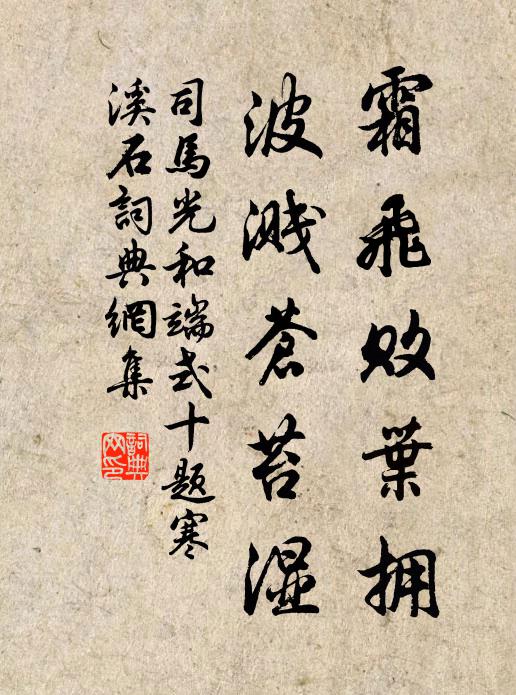 霜飛敗葉拥
波溅苍苔湿
司馬光和端式十题寒
溪石詞典網集
詞典网印